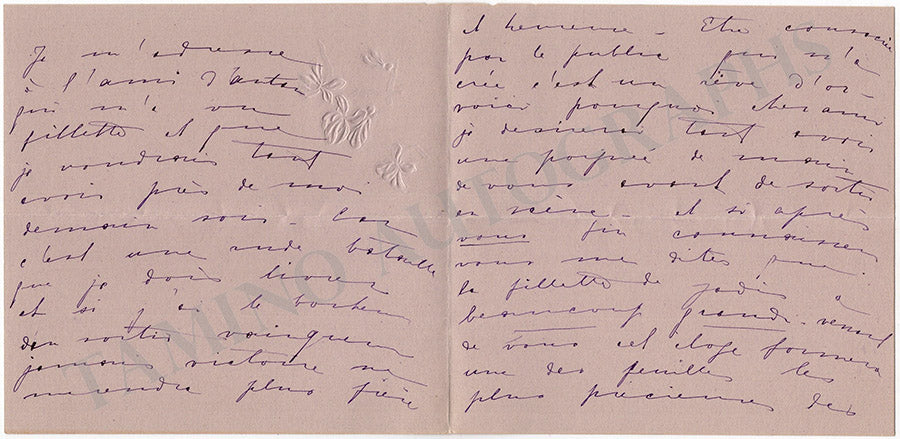 Je m'adresse
à l'ami d'antan
qui m'a vu
fillette et que
je voudrais tant
avoir près de moi
demain soir. Car
c'est une rude bataille
que je dois livrer
et si j'ai le bonheur
d'en sortir vainqueur
jamais victoire ne
me rendra plus fière
et heureuse - Etre consacrée
par le public qui m'a
créée c'est un rêve d'or -
voici pourquoi cher ami
je desirerai tant avoir
une poignée de main
de vous avant de sortir
en scène - et si après
vous en connaisseur
vous me dites que
la fillette de jadis a
beaucoup grandi - venant
de vous cet eloge formera
une des feuilles les
plus précieuses des
TAMINO AUTOGRAPHS